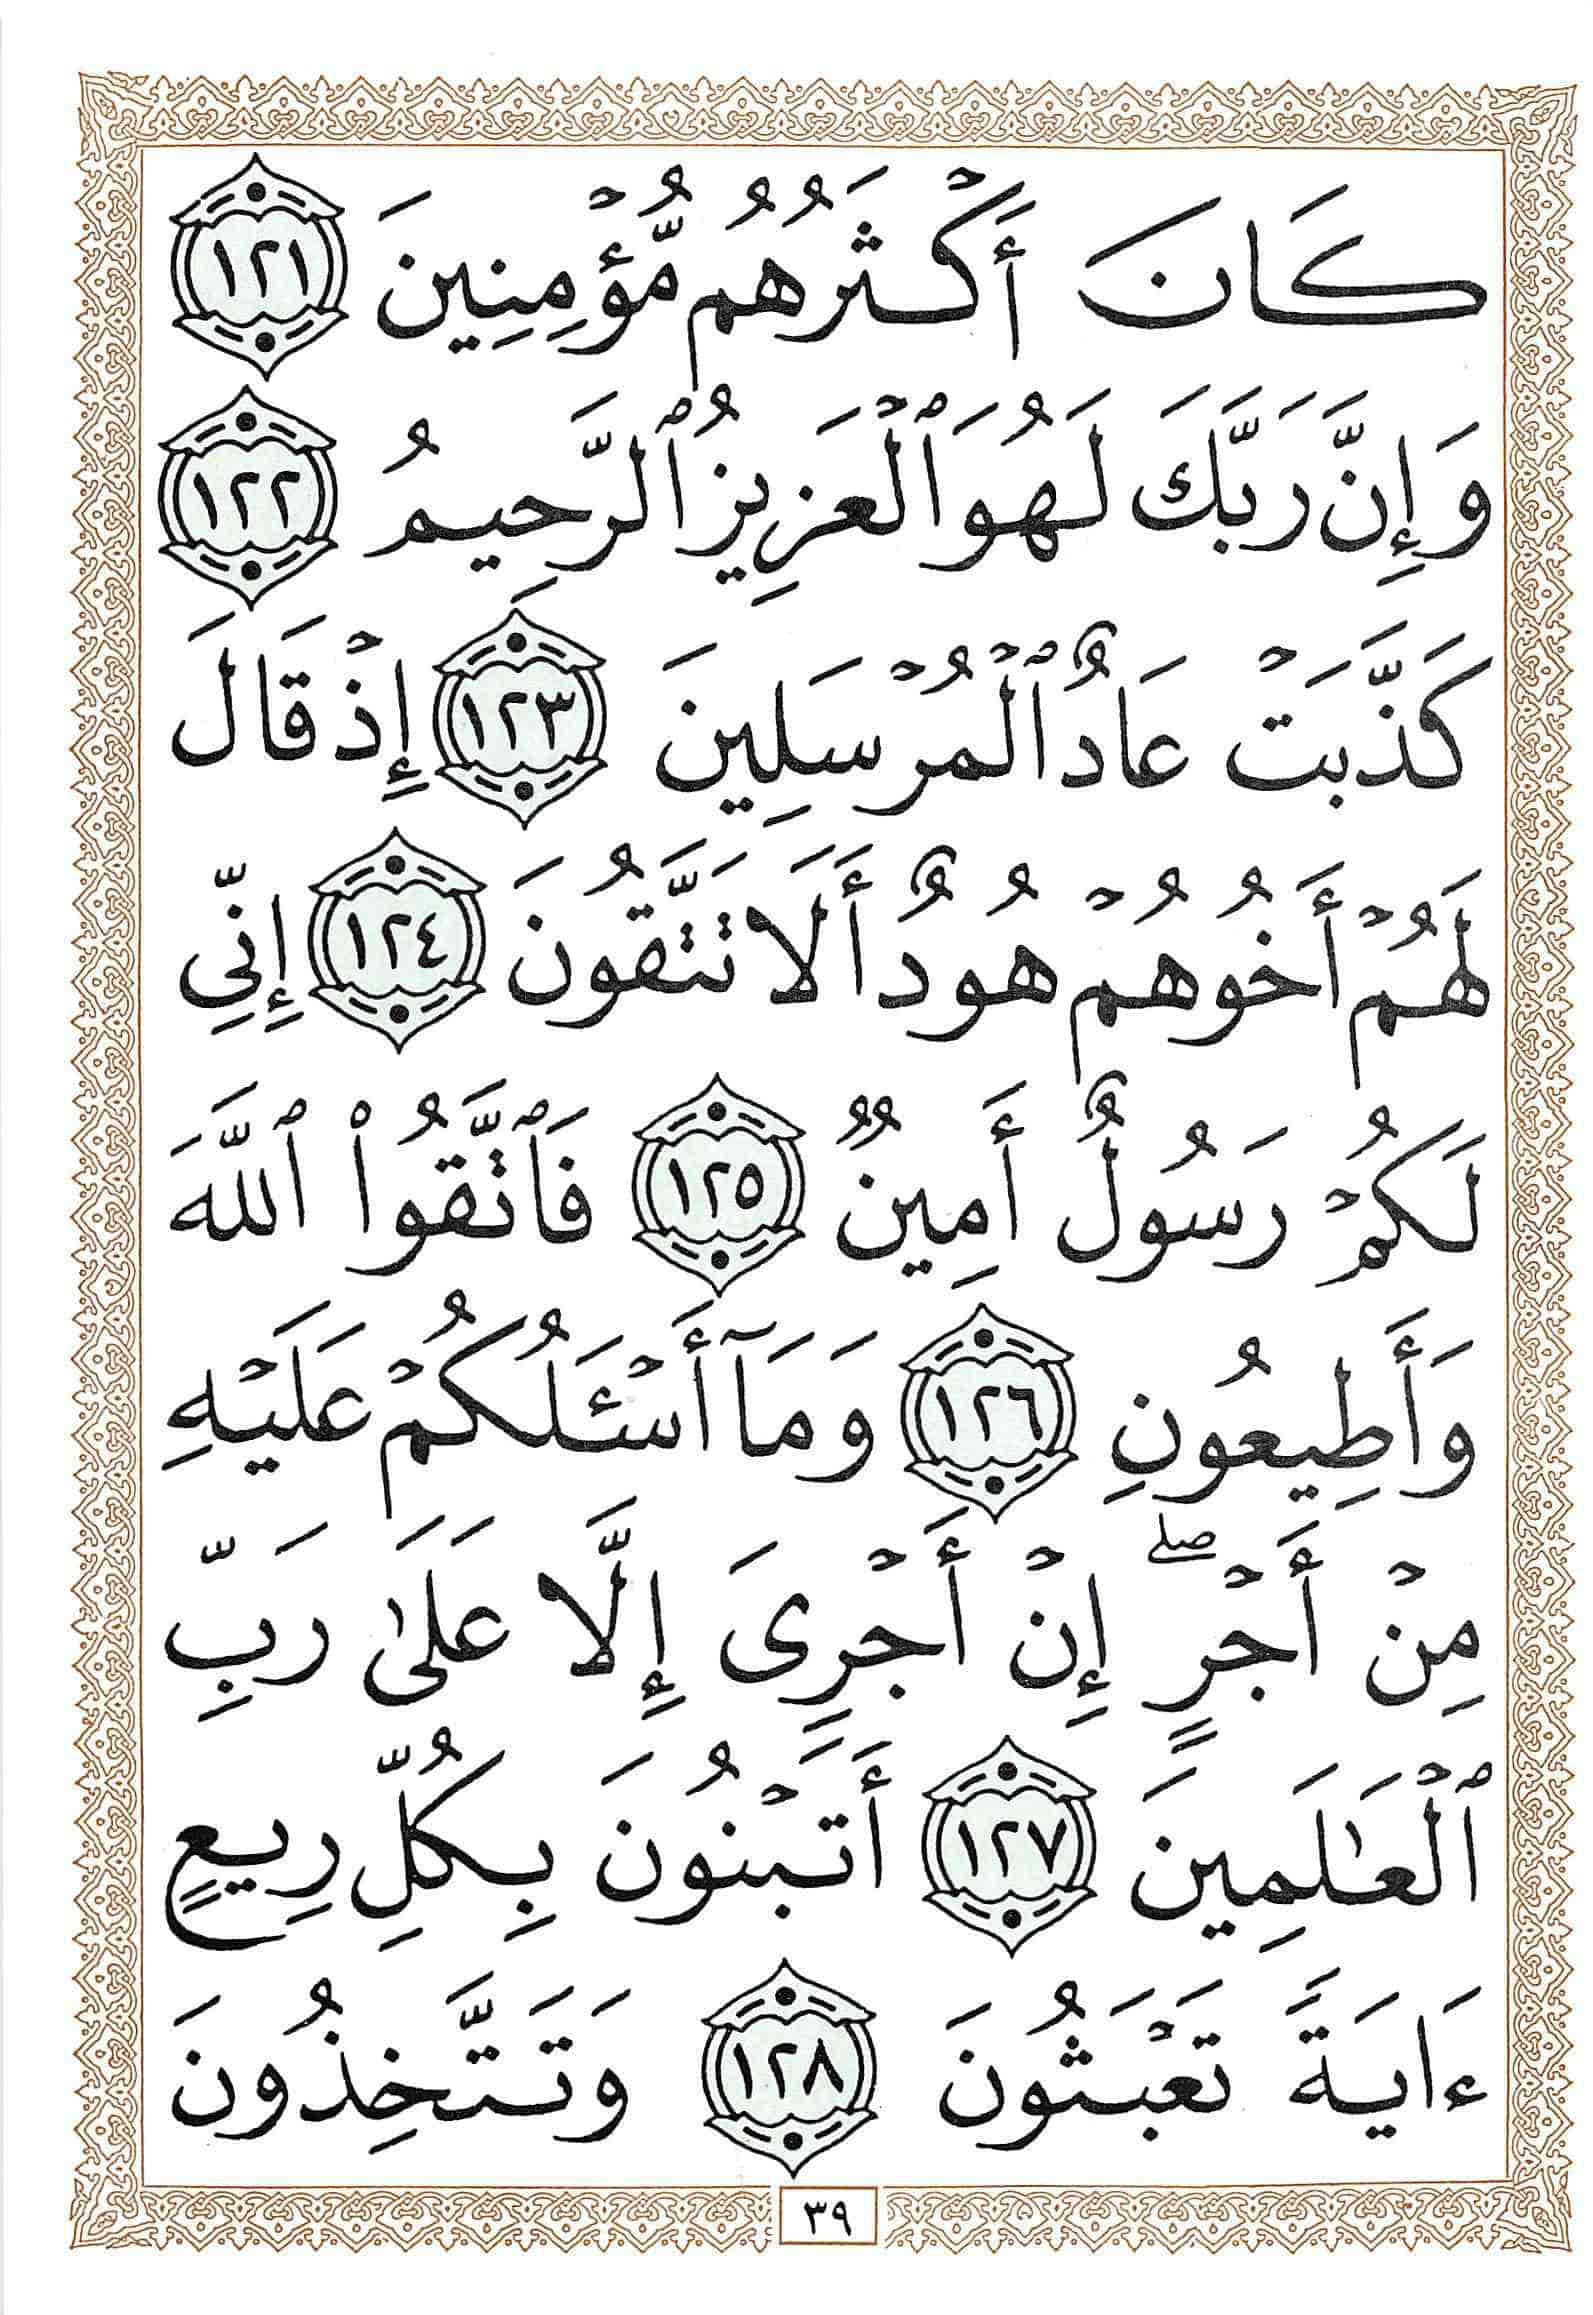 كَانَ أَكْثَرُهُم مُّؤْمِنِينَ ١٢١
وَإِنَّ رَبَّكَ لَهُوَ ٱلْعَزِيزُ ٱلرَّحِيمُ ١٢٢
كَذَّبَتْ عَادٌ ٱلْمُرْسَلِينَ ١٢٣ إِذْ قَالَ
لَهُمْ أَخُوهُمْ هُودٌ أَلَا تَتَّقُونَ ١٢٤ إِنِّى
لَكُمْ رَسُولٌ أَمِينٌ ١٢٥ فَٱتَّقُوا۟ ٱللَّهَ
وَأَطِيعُونِ ١٢٦ وَمَآ أَسْـَٔلُكُمْ عَلَيْهِ
مِنْ أَجْرٍ ۖ إِنْ أَجْرِىَ إِلَّا عَلَىٰ رَبِّ
ٱلْعَـٰلَمِينَ ١٢٧ أَتَبْنُونَ بِكُلِّ رِيعٍ
ءَايَةً تَعْبَثُونَ ١٢٨ وَتَتَّخِذُونَ
٣٩